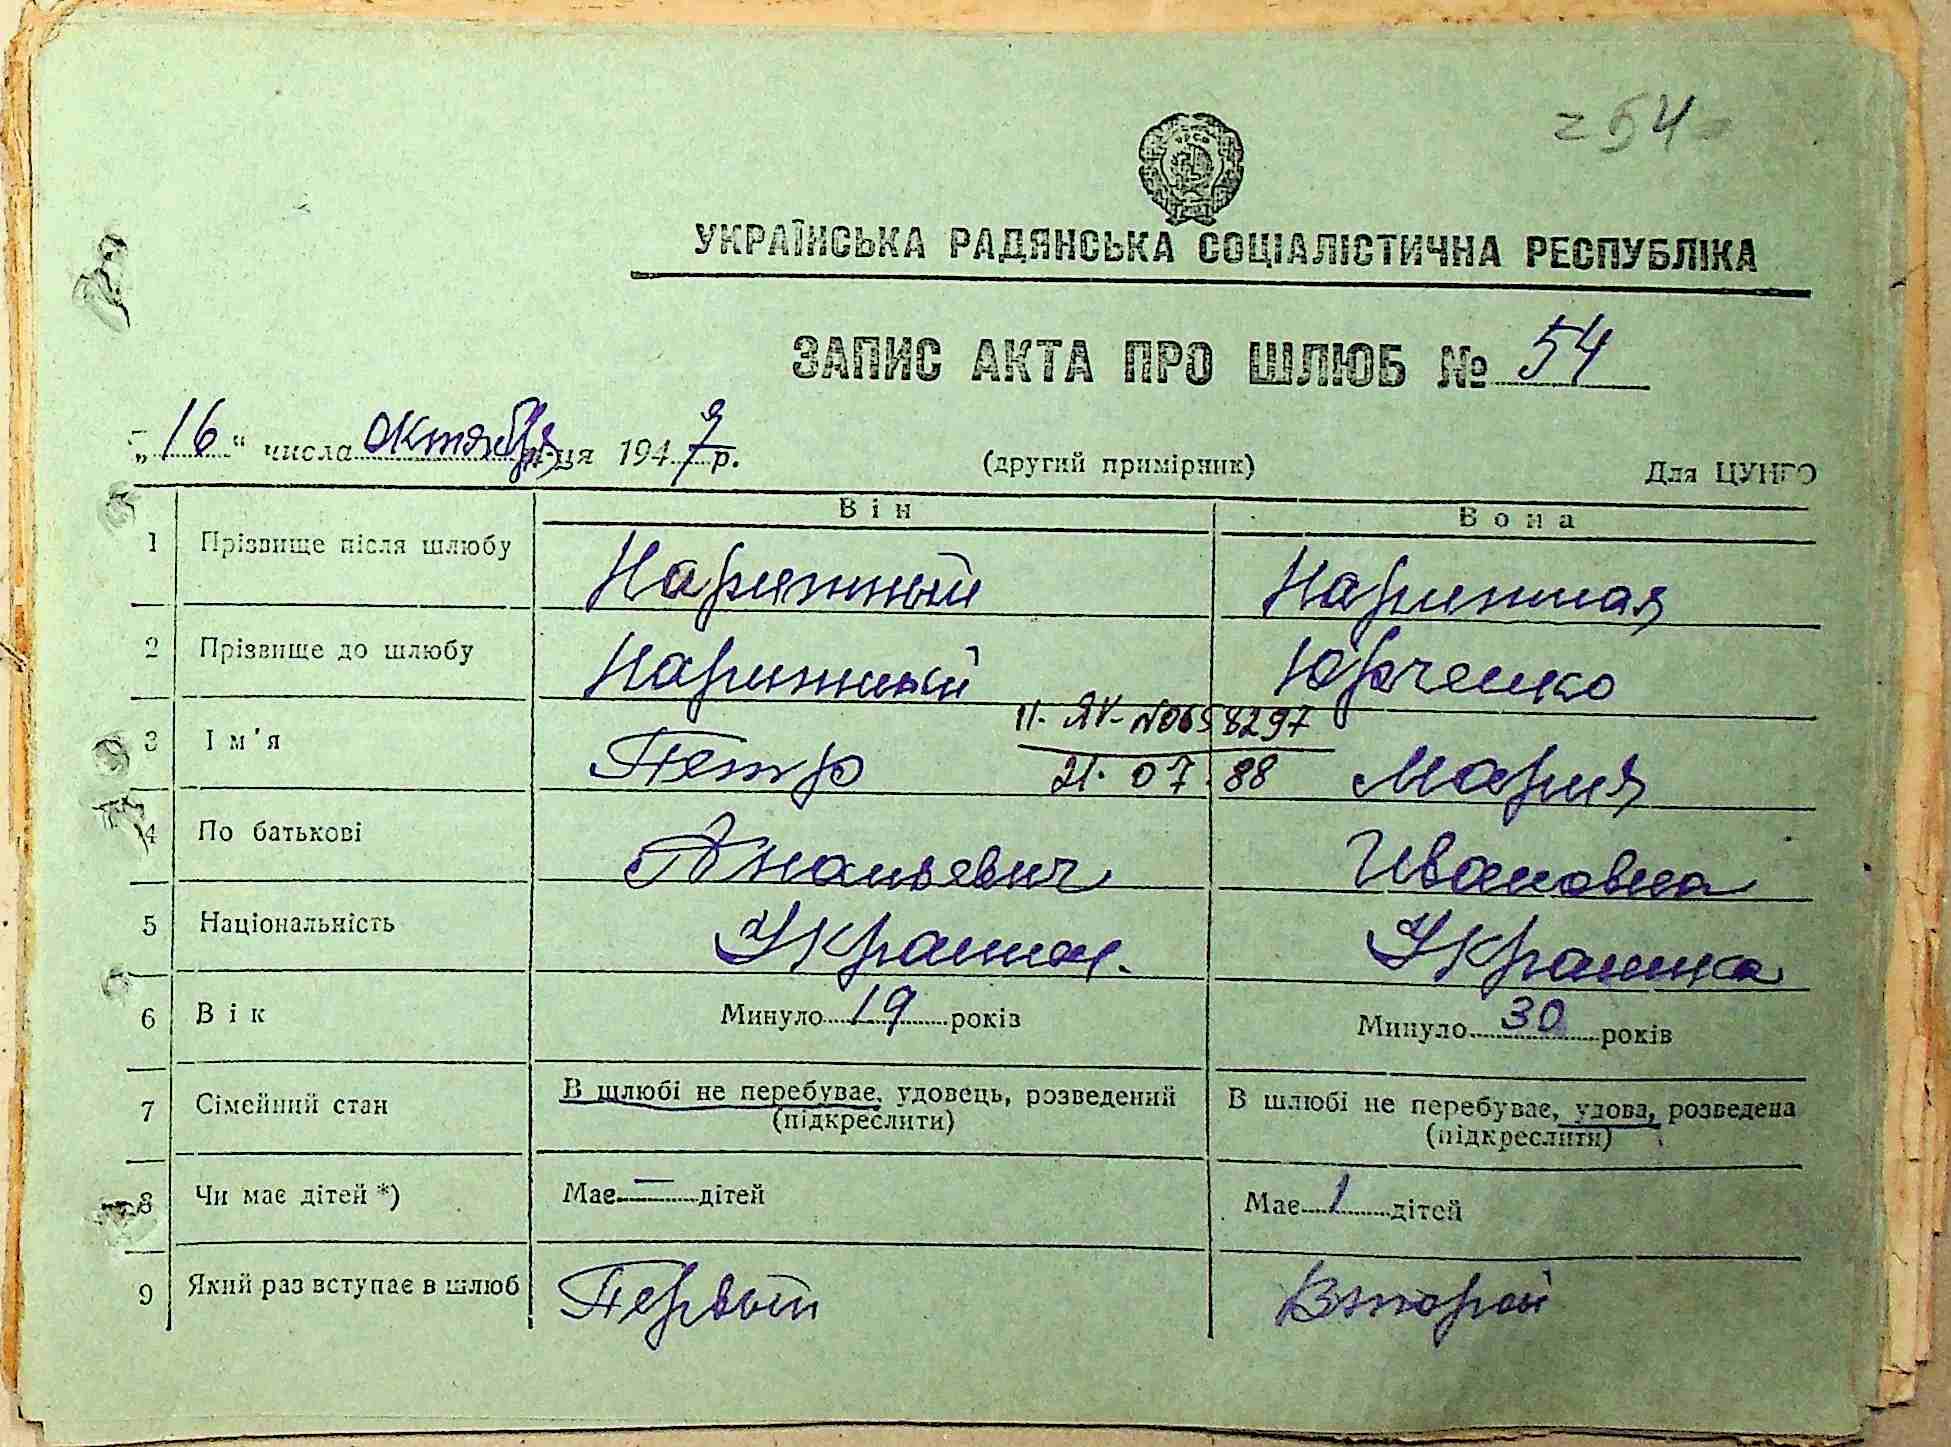 54
УКРАЇНСЬКА РАДЯНСЬКА СОЦІАЛІСТИЧНА РЕСПУБЛІКА
ЗАПИС АКТА ПРО ШЛЮБ № 54
„16" числа октября м-ця 1947 р. (другий примірник) Для ЦУНГО
Він Вона
1 Прізвище після шлюбу Нарижный Нарижная
2 Прізвище до шлюбу Нарижный Юрченко
3 Ім'я Петр Мария
II-ЯК-№0658297
21.07.88
4 По батькові Ананьевич Ивановна
5 Національність Украинец. Украинка
6 Вік Минуло 19 років Минуло 30 років
7 Сімейний стан В шлюбі не перебуває, удовець, розведений В шлюбі не перебуває, удова, розведена
(підкреслити) (підкреслити)
8 Чи має дітей *) Має — дітей Має 1 дітей
9 Який раз вступає в шлюб Первый Второй